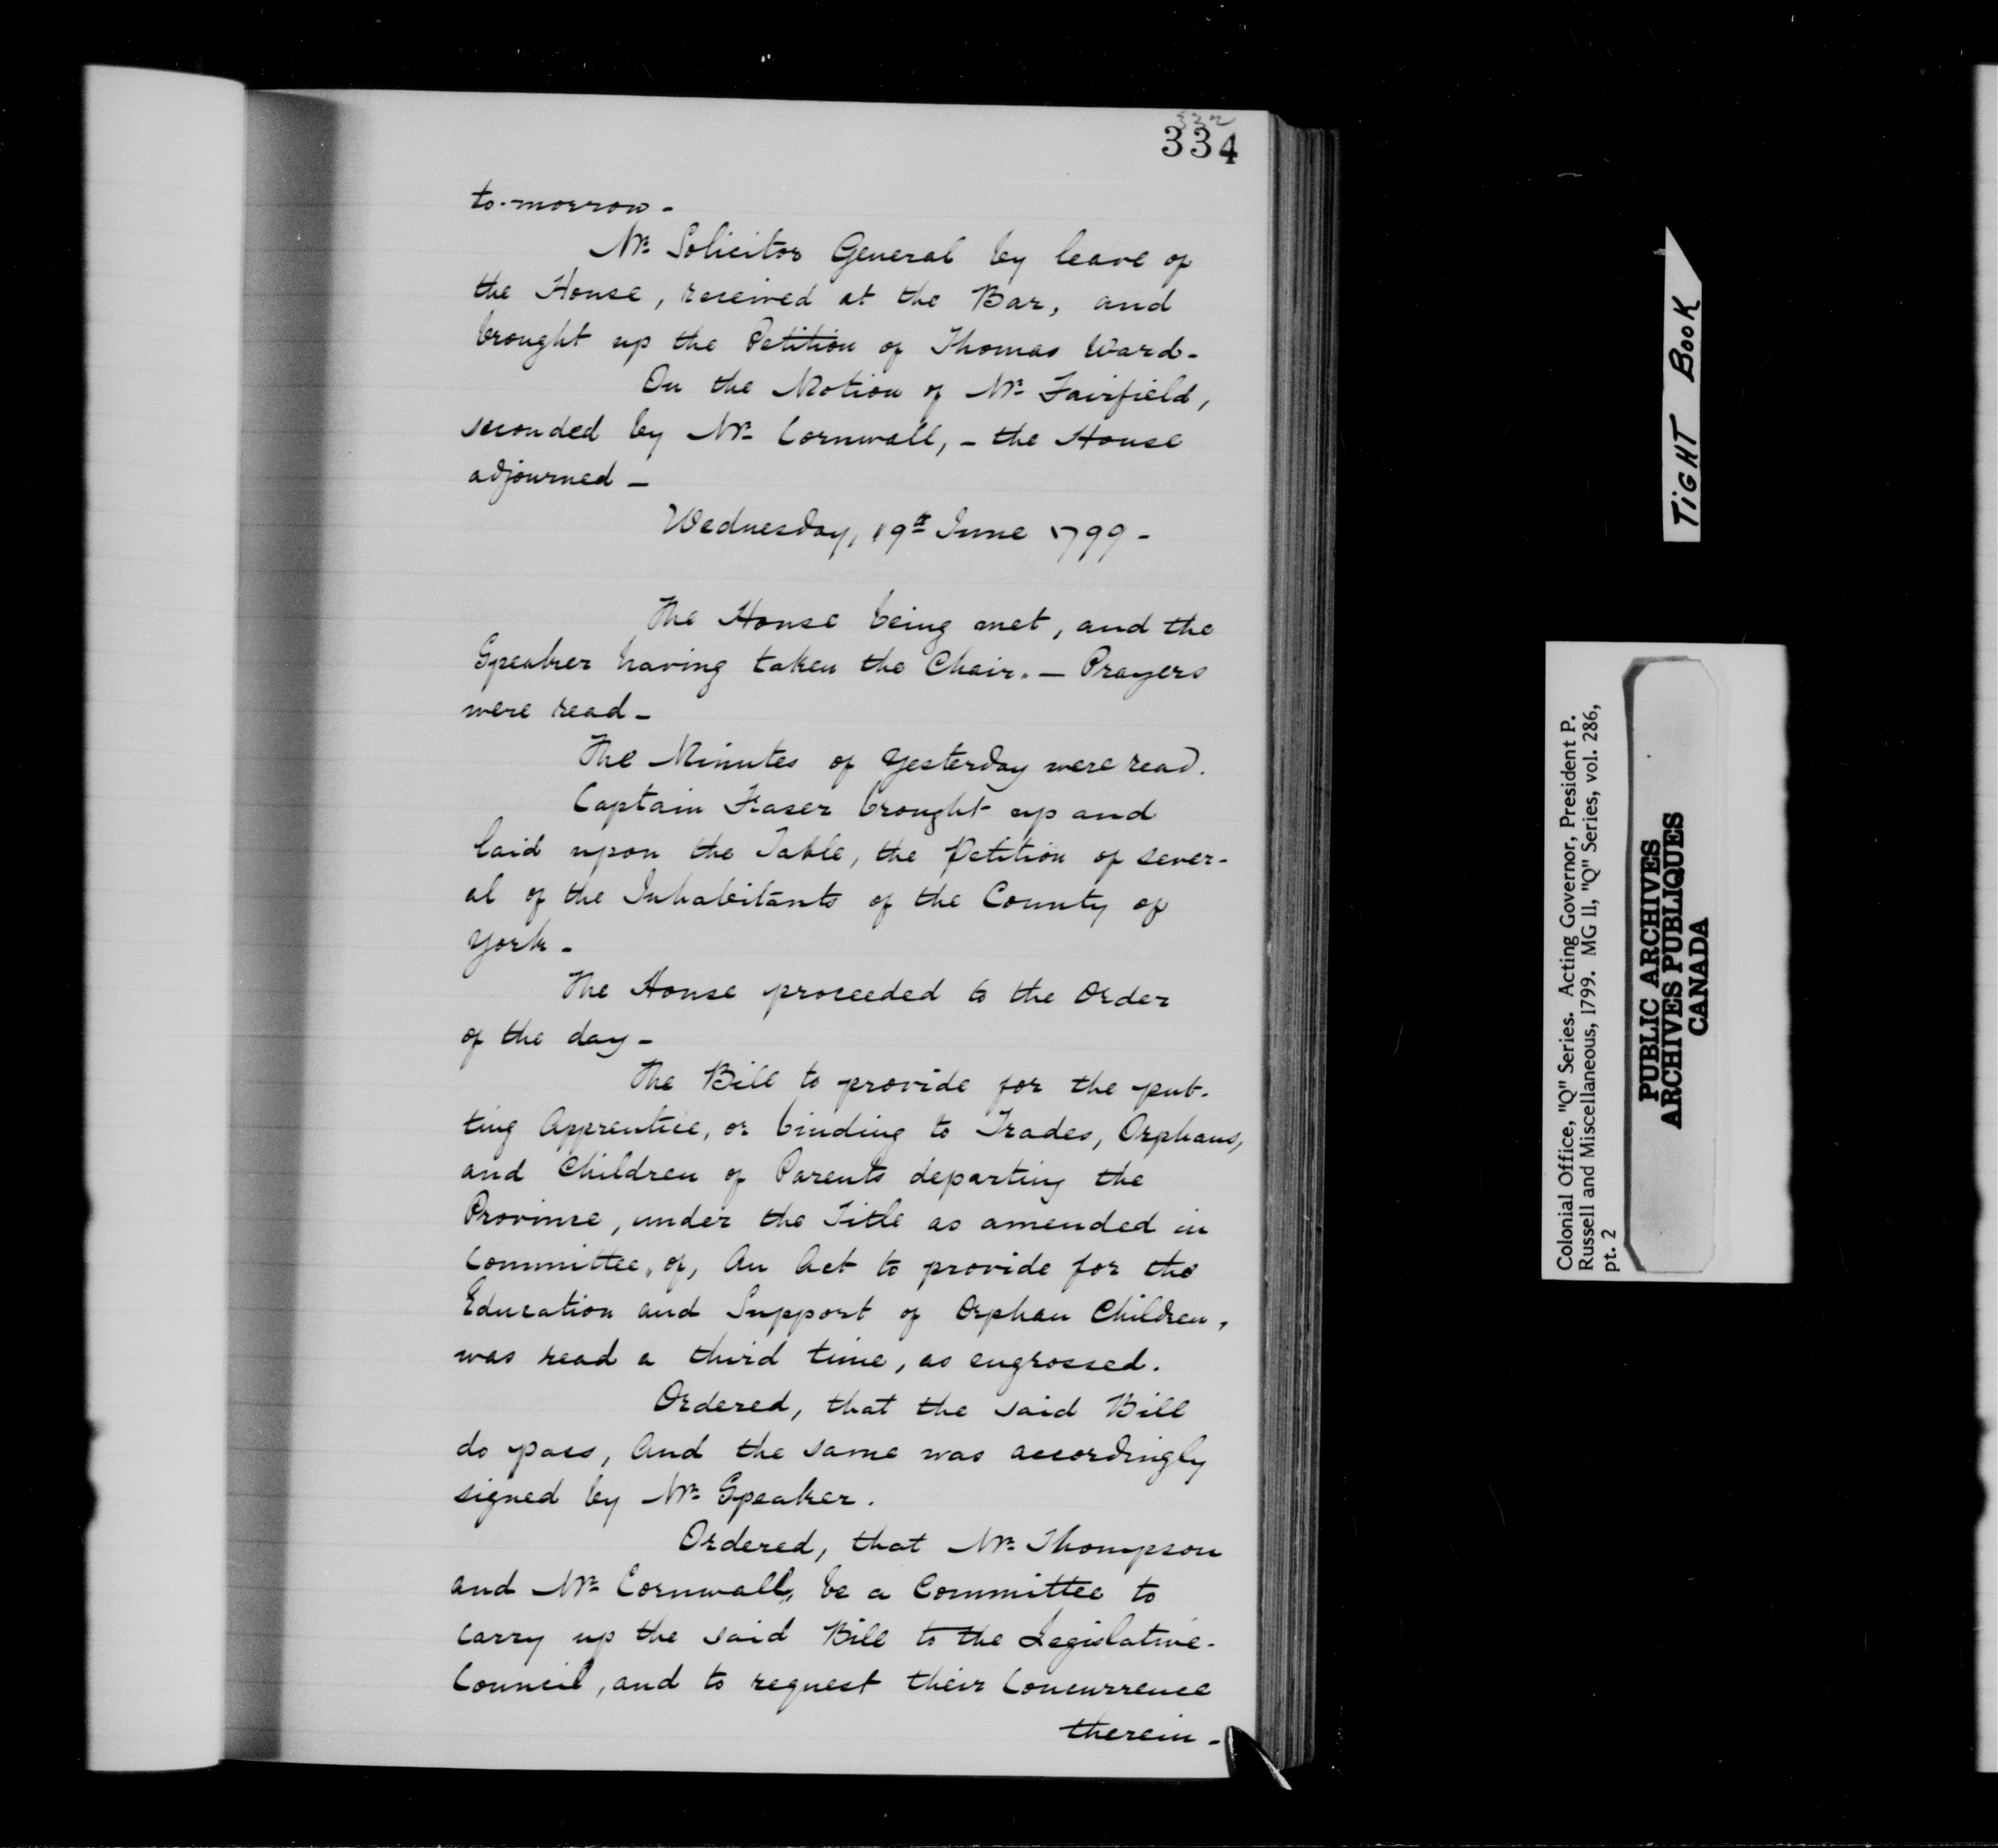 332
334
to-morrow -
Mr. Solicitor General by leave of
the House, received at the Bar, and
brought up the Petition of Thomas Ward -
On the Motion of Mr. Fairfield,
seconded by Mr. Cornwall, - the House
adjourned -
Wednesday, 19th June 1799 -
The House being met, and the
Speaker having taken the Chair. - Prayers
were read -
The Minutes of Yesterday were read.
Captain Fraser brought up and
laid upon the Table, the Petition of sever-
al of the Inhabitants of the County of
York -
The House proceeded to the Order
of the day -
The Bill to provide for the put-
ting Apprentice, or binding to Trades, Orphans,
and Children of Parents departing the
Province, under the Title as amended in
Committee, of, An Act to provide for the
Education and Support of Orphan Children,
was read a third time, as engrossed.
Ordered, that the said Bill
do pass, And the same was accordingly
signed by Mr. Speaker.
Ordered, that Mr. Thompson
and Mr. Cornwall, be a Committee to
carry up the said Bill to the Legislative-
Council, and to request their Concurrence
therein -
TIGHT BOOK
Colonial Office, "Q" Series. Acting Governor, President P.
Russell and Miscellaneous, 1799. MG 11, "Q" Series, vol. 286,
pt. 2
PUBLIC ARCHIVES
ARCHIVES PUBLIQUES
CANADA